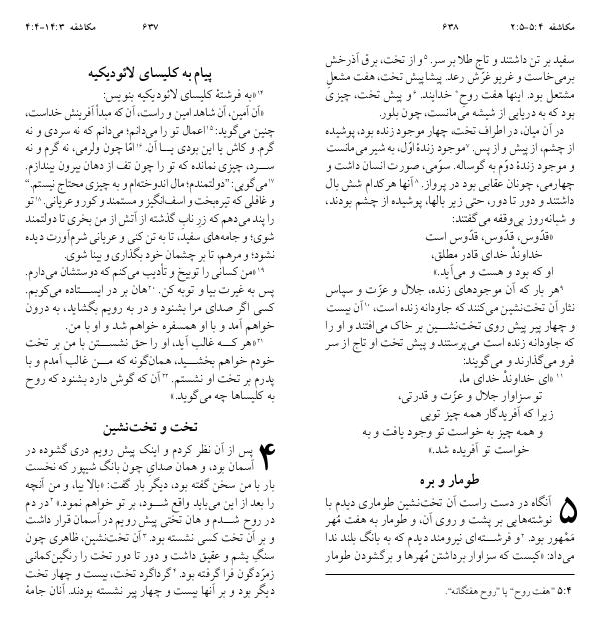 مکاشفه ۳:‏۱۴-۴:‏۴
۶۳۷
پیام به کلیسای لائودیکیه
۱۴«به فرشتهٔ کلیسای لائودیکیه بنویس:
«آن آمین، آن شاهد امین و راست، آن که مبدأ آفرینش خداست،
چنین می‌گوید: ۱۵اعمال تو را می‌دانم؛ می‌دانم که نه سردی و نه
گرم. و کاش یا این بودی یا آن. ۱۶امّا چون ولرمی، نه گرم و نه
سرد، چیزی نمانده که تو را چون تف از دهان بیرون بیندازم.
۱۷می‌گویی: ”دولتمندم؛ مال اندوخته‌ام و به چیزی محتاج نیستم.“
و غافلی که تیره‌بخت و اسف‌انگیز و مستمند و کور و عریانی. ۱۸تو
را پند می‌دهم که زرِ نابِ گذشته از آتش از من بخری تا دولتمند
شوی؛ و جامه‌های سفید، تا به تن کنی و عریانی شرم‌آورت دیده
نشود؛ و مرهم، تا بر چشمان خود بگذاری و بینا شوی.
۱۹«من کسانی را توبیخ و تأدیب می‌کنم که دوستشان می‌دارم.
پس به غیرت بیا و توبه کن. ۲۰هان بر در ایستاده می‌کوبم.
کسی اگر صدای مرا بشنود و در به رویم بگشاید، به درون
خواهم آمد و با او همسفره خواهم شد و او با من.
۲۱«هر که غالب آید، او را حق نشستن با من بر تخت
خودم خواهم بخشید، همان‌گونه که من غالب آمدم و با
پدرم بر تخت او نشستم. ۲۲آن که گوش دارد بشنود که روح
به کلیساها چه می‌گوید.»
تخت و تخت‌نشین
۴ پس از آن نظر کردم و اینک پیش رویم دری گشوده در
آسمان بود، و همان صدای چون بانگ شیپور که نخست
بار با من سخن گفته بود، دیگر بار گفت: «بالا بیا، و من آنچه
را بعد از این می‌باید واقع شود، بر تو خواهم نمود.» ۲در دم
در روح شدم و هان تختی پیش رویم در آسمان قرار داشت
و بر آن تخت کسی نشسته بود. ۳آن تخت‌نشین، ظاهری چون
سنگ یشم و عقیق داشت و دور تا دور تخت را رنگین‌کمانی
زمرّدگون فرا گرفته بود. ۴گرداگرد تخت، بیست و چهار تخت
دیگر بود و بر آنها بیست و چهار پیر نشسته بودند. آنان جامهٔ
مکاشفه ۴:‏۵-۵:‏۲
۶۳۸
سفید بر تن داشتند و تاج طلا بر سر. ۵و از تخت، برق آذرخش
برمی‌خاست و غریو غرّش رعد. پیشاپیش تخت، هفت مشعلِ
مشتعل بود. اینها هفت روح* خدایند. ۶و پیش تخت، چیزی
بود که به دریایی از شیشه می‌مانست، چون بلور.
در آن میان، در اطراف تخت، چهار موجود زنده بود، پوشیده
از چشم، از پیش و از پس. ۷موجود زندهٔ اوّل، به شیر می‌مانست
و موجود زندهٔ دوّم به گوساله. سوّمی، صورت انسان داشت و
چهارمی، چونان عقابی بود در پرواز. ۸آنها هر کدام شش بال
داشتند و دور تا دور، حتی زیر بالها، پوشیده از چشم بودند،
و شبانه‌روز بی‌وقفه می‌گفتند:
«قدّوس، قدّوس، قدّوس است
خداوندْ خدای قادر مطلق،
او که بود و هست و می‌آید.»
۹هر بار که آن موجودهای زنده، جلال و عزّت و سپاس
نثار آن تخت‌نشین می‌کنند که جاودانه زنده است، ۱۰آن بیست
و چهار پیر پیش روی تخت‌نشین بر خاک می‌افتند و او را
که جاودانه زنده است می‌پرستند و پیش تخت او تاج از سر
فرو می‌گذارند و می‌گویند:
۱۱«ای خداوندْ خدای ما،
تو سزاوار جلال و عزّت و قدرتی،
زیرا که آفریدگار همه چیز تویی
و همه چیز به خواست تو وجود یافت و به
خواست تو آفریده شد.»
طومار و بره
۵ آنگاه در دست راست آن تخت‌نشین طوماری دیدم با
نوشته‌هایی بر پشت و روی آن، و طومار به هفت مُهر
مَمْهور بود. ۲و فرشته‌ای نیرومند دیدم که به بانگ بلند ندا
می‌داد: «کیست که سزاوار برداشتن مُهرها و برگشودن طومار
۴:‏۵ ”هفت روح“ یا ”روح هفتگانه“.